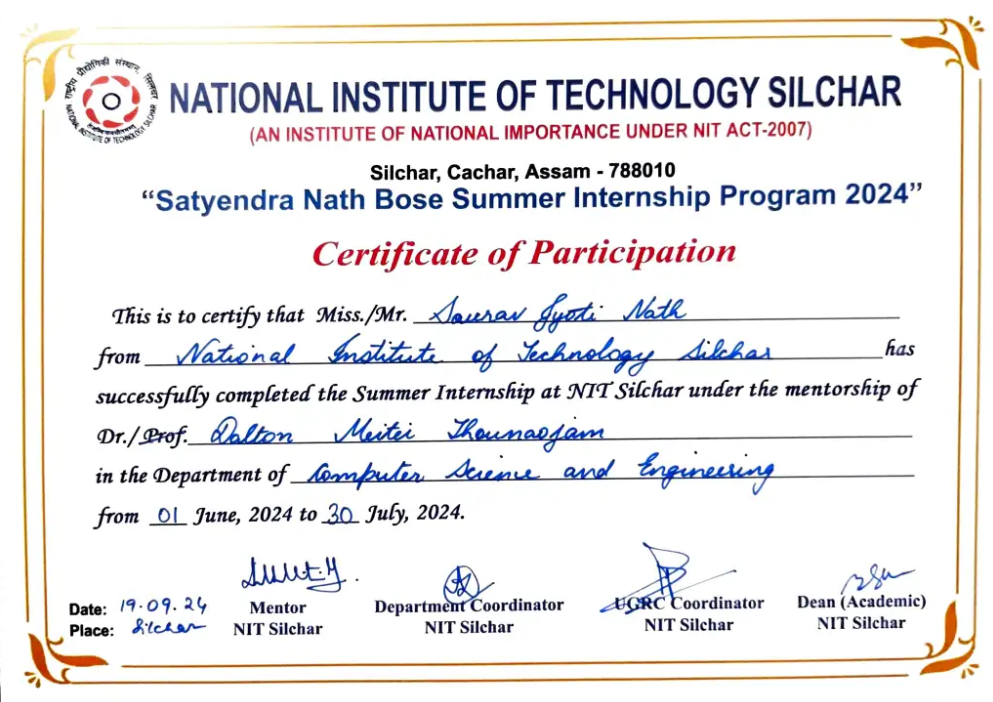 राष्ट्रीय प्रौद्योगिकी संस्थान, सिलचर
NATIONAL INSTITUTE OF TECHNOLOGY SILCHAR
NATIONAL INSTITUTE OF TECHNOLOGY SILCHAR
(AN INSTITUTE OF NATIONAL IMPORTANCE UNDER NIT ACT-2007)
Silchar, Cachar, Assam - 788010
“Satyendra Nath Bose Summer Internship Program 2024”
Certificate of Participation
This is to certify that Miss./Mr. Sourav Jyoti Nath
from National Institute of Technology Silchar has
successfully completed the Summer Internship at NIT Silchar under the mentorship of
Dr./Prof. Dalton Meitei Thounaojam
in the Department of Computer Science and Engineering
from 01 June, 2024 to 30 July, 2024.
Date: 19.09.24
Place: Silchar
Mentor
NIT Silchar
Department Coordinator
NIT Silchar
UGRC Coordinator
NIT Silchar
Dean (Academic)
NIT Silchar